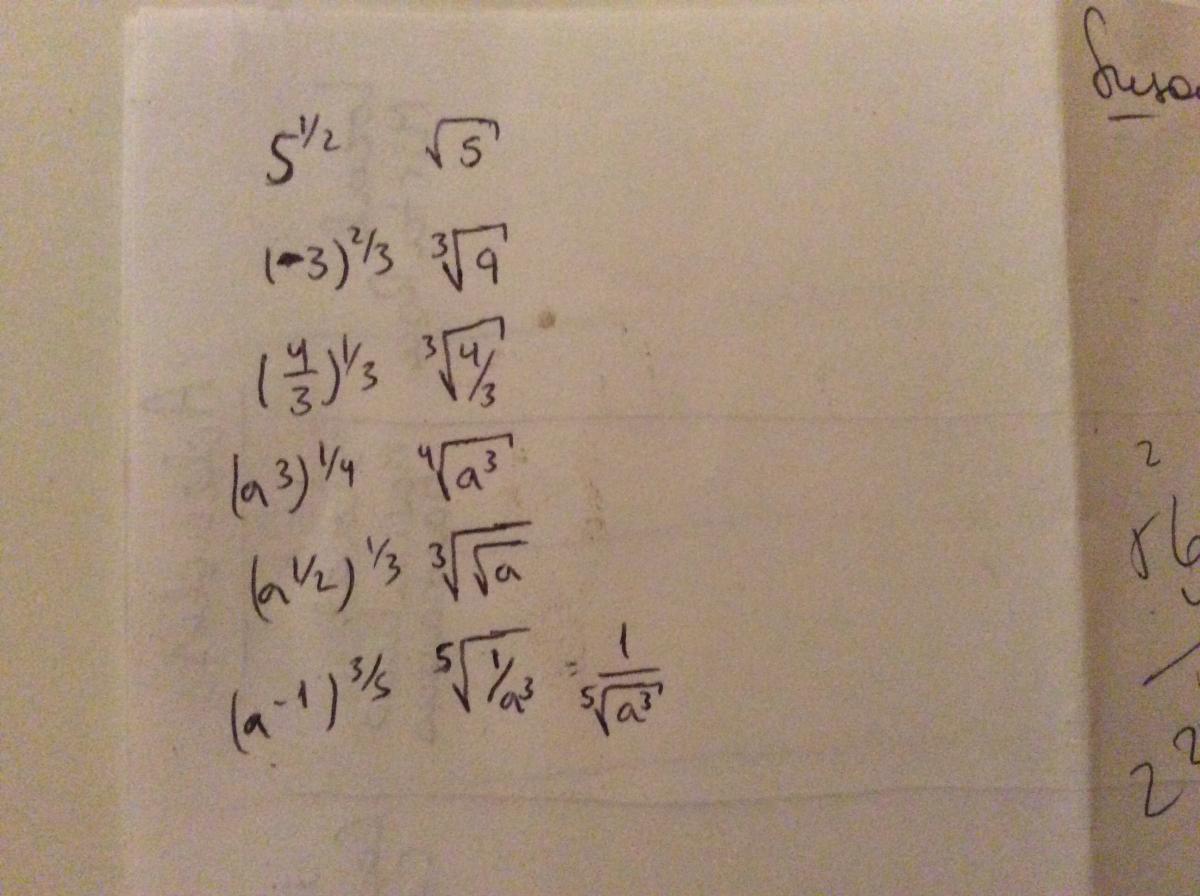 5^1/2 √5
(-3)^2/3 ³√9
(4/3)^1/3 ³√4/3
(a3)^1/4 ⁴√a³
(a^1/2)^1/3 ³√√a
(a^-1)^3/5 ⁵√1/a³ = 1/⁵√a³
2
2²